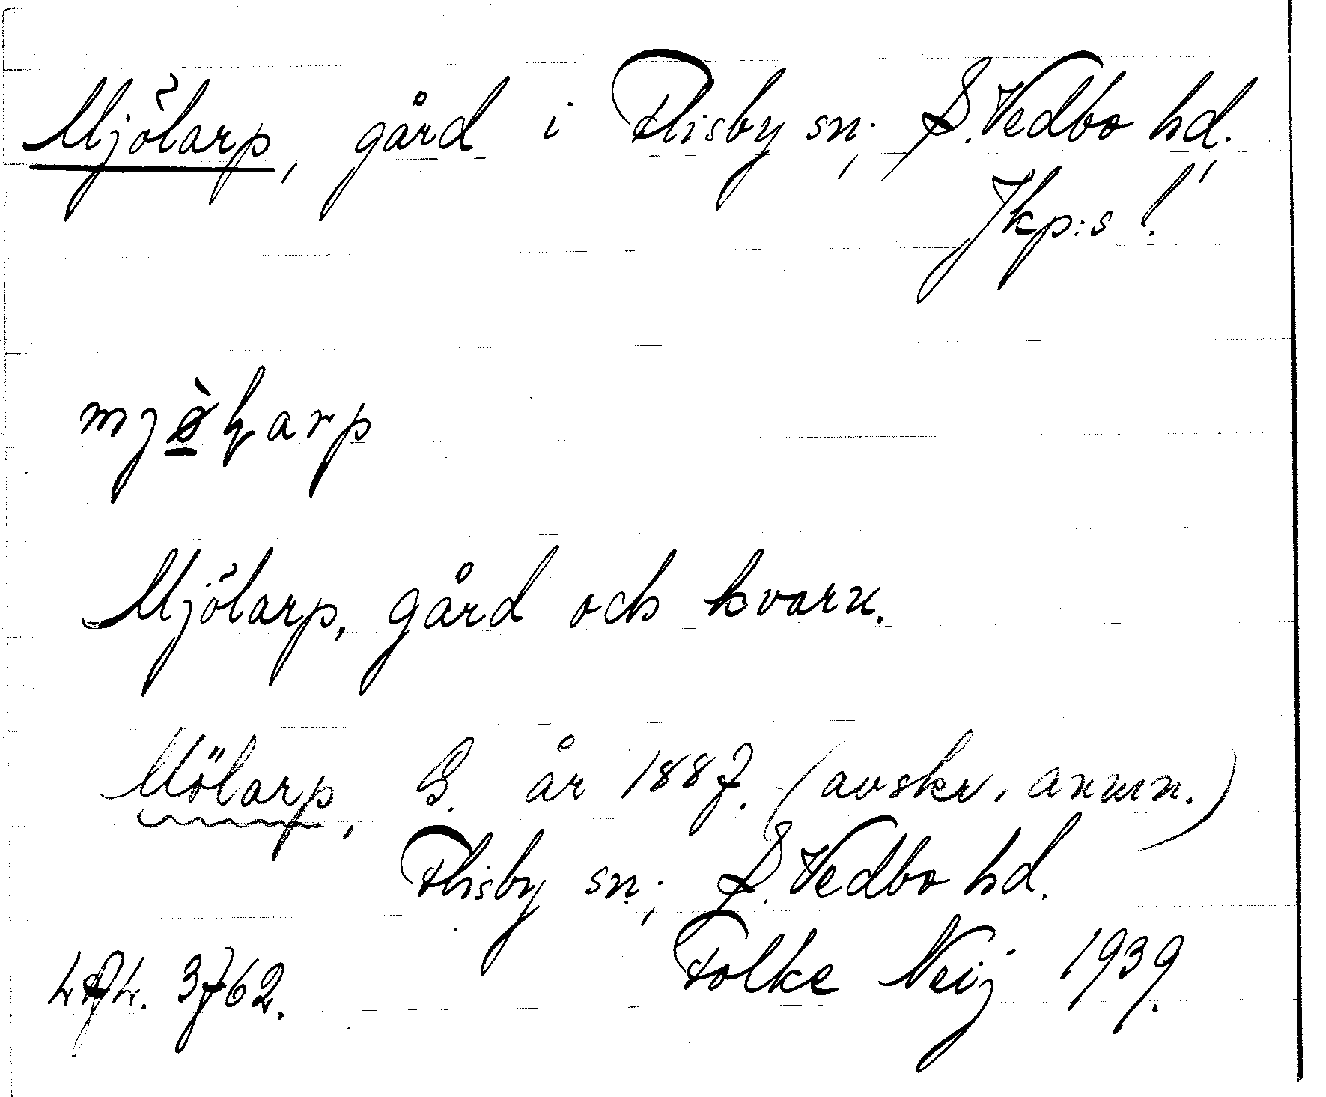 Mjölarp, gård i Flisby sn, S. Vedbo hd,
Jkp:s l.
mjö̀larp
Mjölarp, gård och kvarn.
Mölarp, G. år 1887. (avskr. anm.)
Flisby sn, S. Vedbo hd.
3762. Folke Neij 1939.